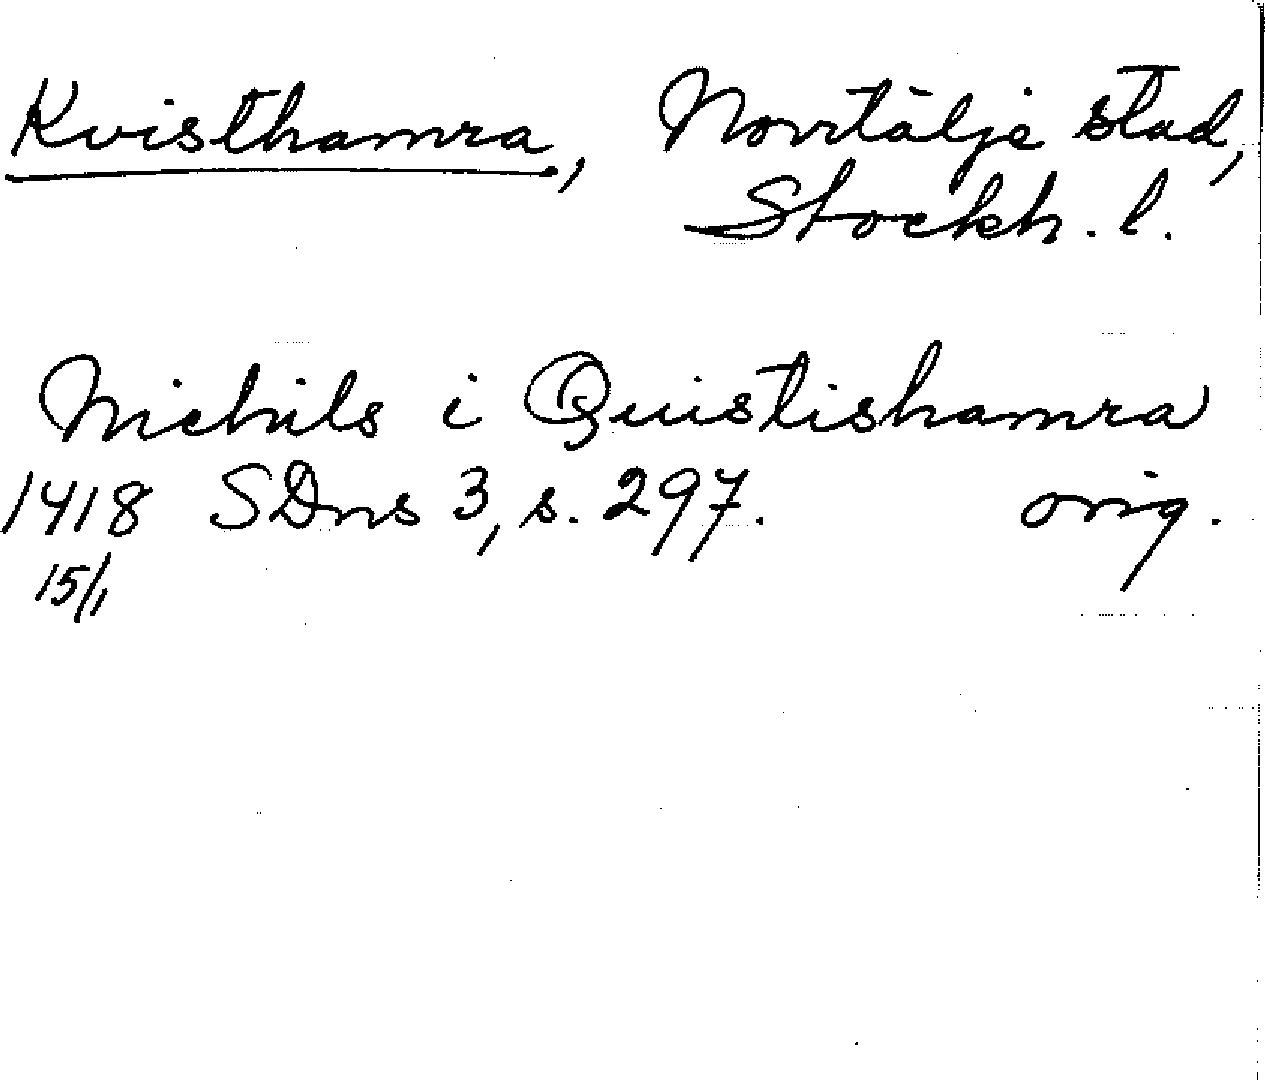 Kvisthamra, Norrtälje stad,
Stockh. l.
Michils i Quistishamra
1418 SDns 3, s. 297. orig.
15/1